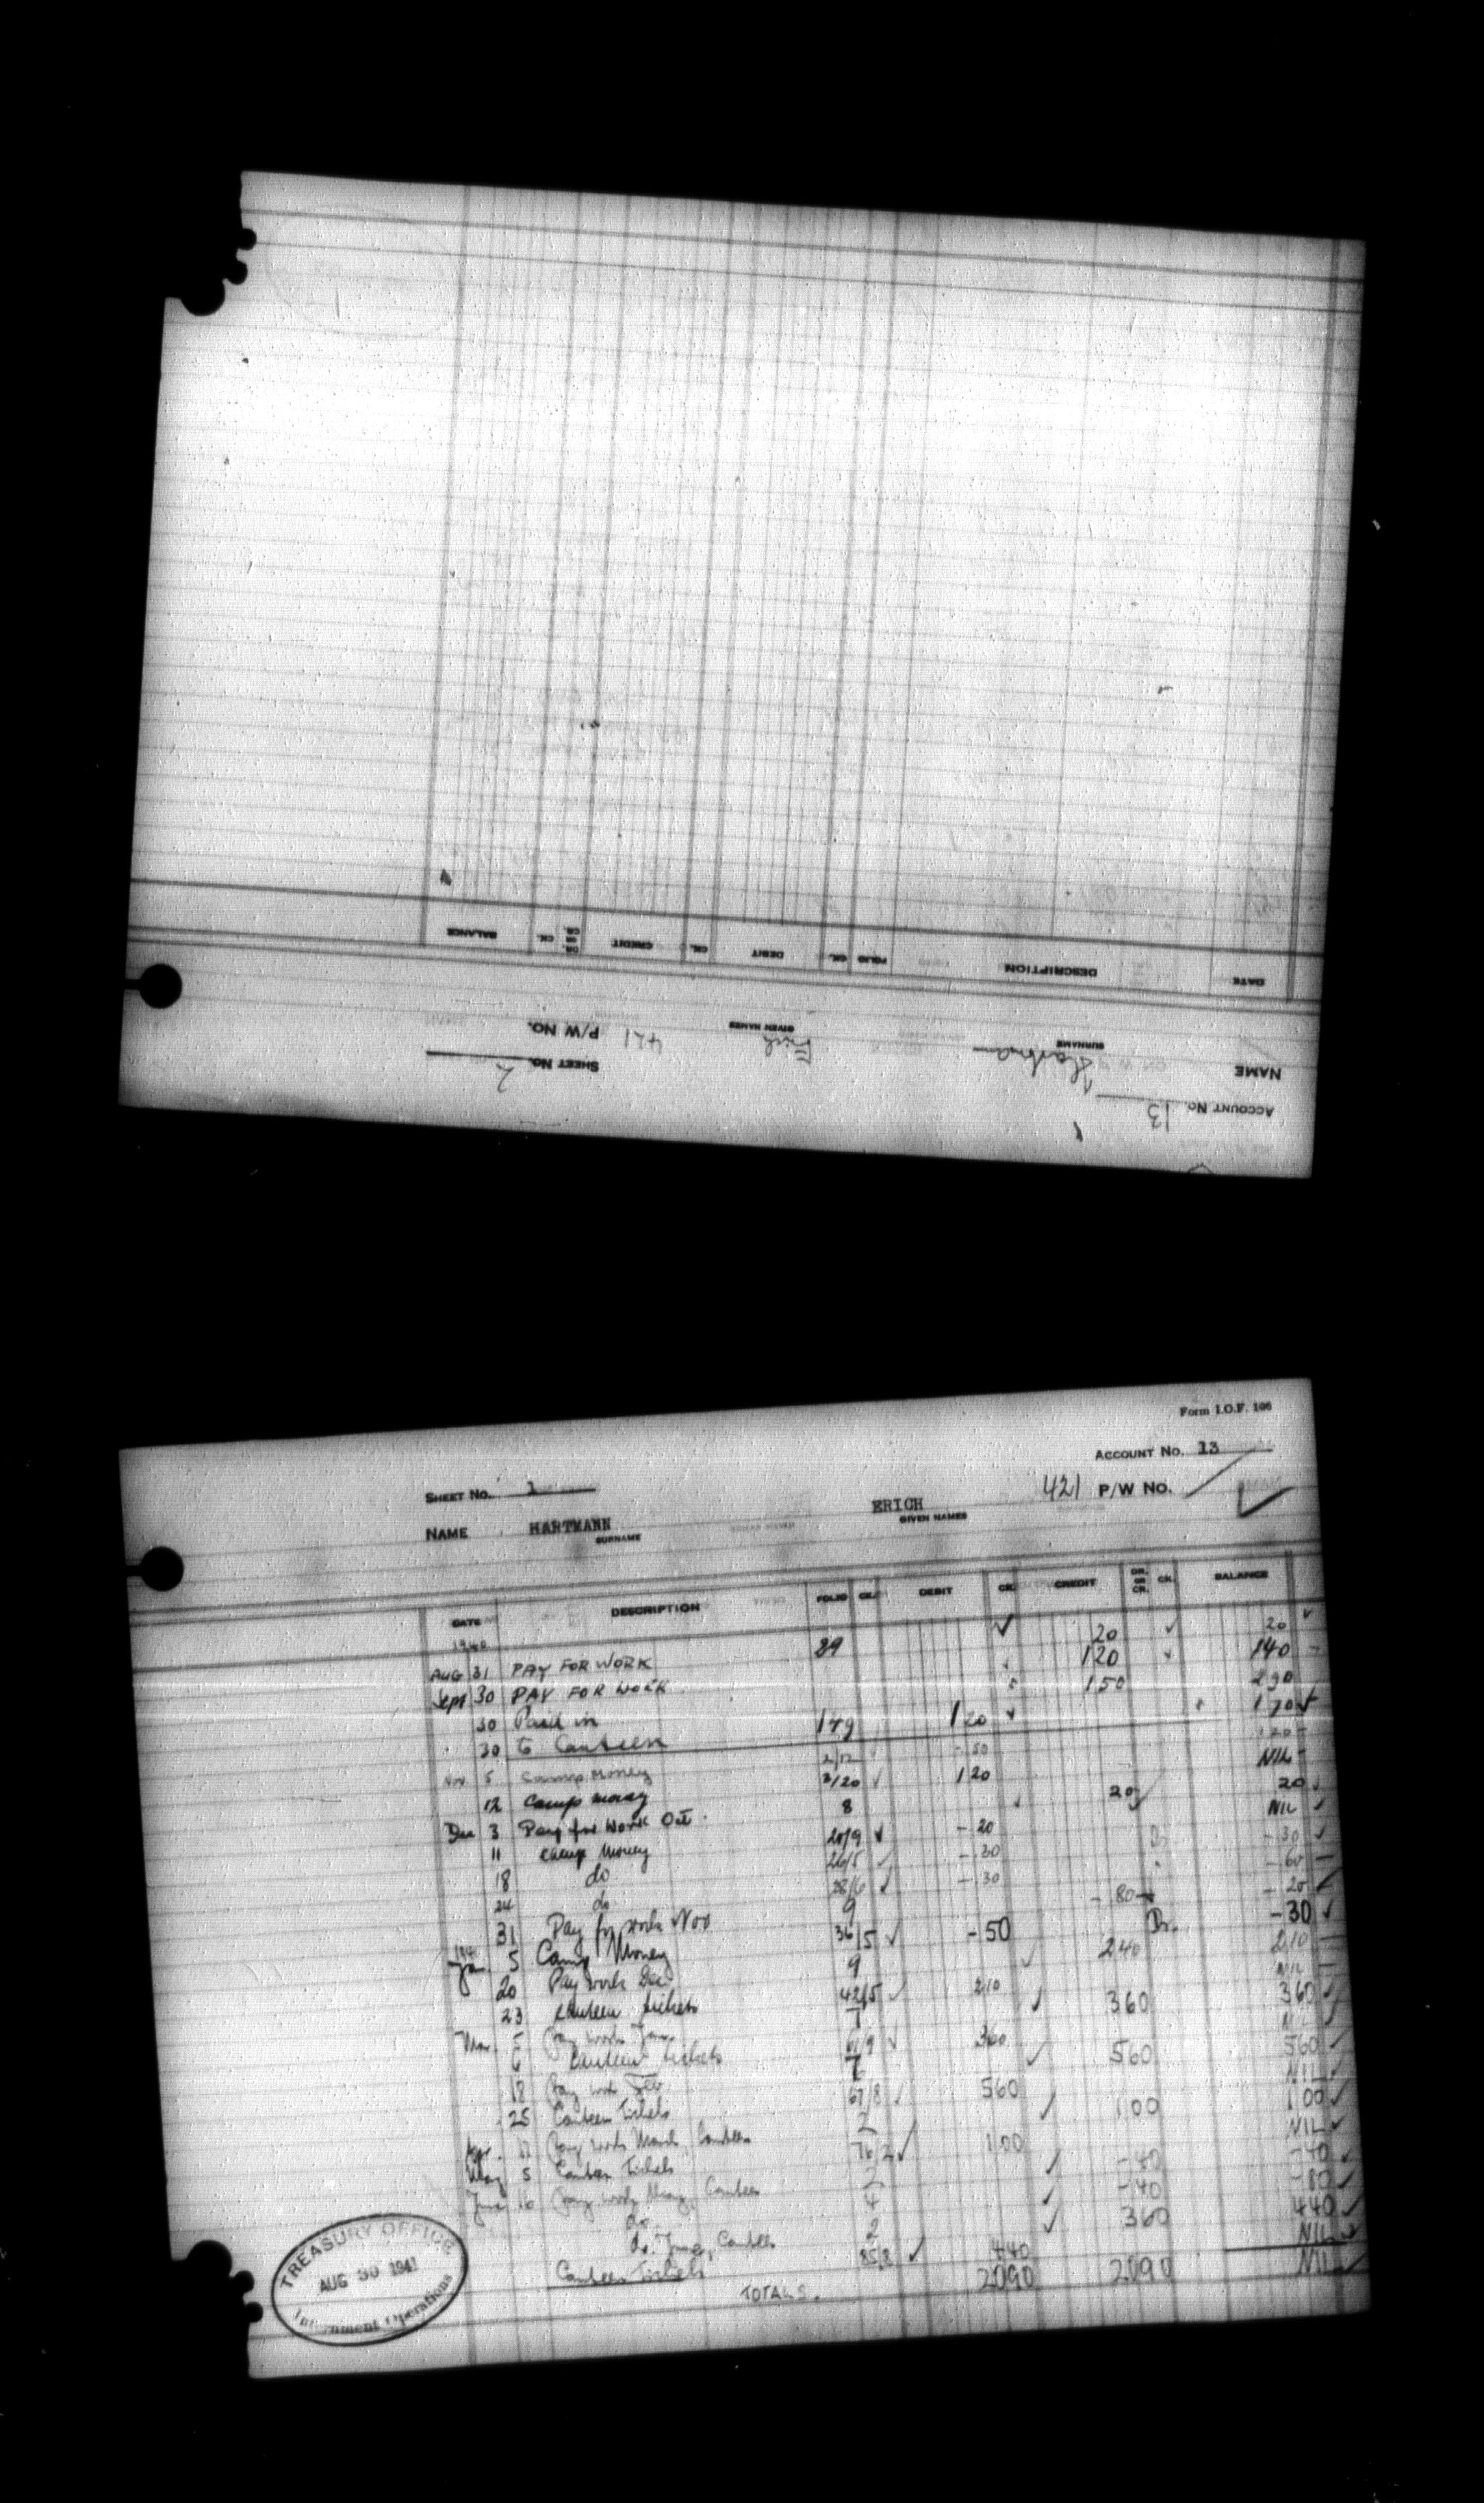 ACCOUNT No. 13
SHEET No. 2
NAME
SURNAME
Erich
GIVEN NAMES
421 P/W No.
DATE DESCRIPTION FOLIO CK. DEBIT CK. CREDIT DR. OR CR. CK. BALANCE
Form I.O.F. 106
ACCOUNT No. 13
SHEET No. 1
421 P/W No.
NAME HARTMANN ERICH
SURNAME GIVEN NAMES
DATE DESCRIPTION FOLIO CK. DEBIT CK. CREDIT DR. OR CR. CK. BALANCE
1940
AUG 31 PAY FOR WORK 89 20 20
Sept 30 PAY FOR WORK 120 140
30 Paid in 150 290
30 To Canteen 149 120 170
Nov 5 Camp Money 2/12 - 50 120
12 Camp money 3/20 120 NIL
Dec 3 Pay for Work Oct. 8 20 20
11 Camp Money 20/9 - 20 NIL
18 do 26/5 - 30 Dr. - 30
24 do 28/6 - 30 - 60
31 Pay for work Nov 9 - 80 - 20
Jan 5 Camp Money 36/5 - 50 Dr. - 30
20 Pay work Dec 9 240 210
23 Canteen tickets 42/5 210 NIL
Mar. 5 Pay work Jan. 7 360 360
6 Canteen tickets 61/9 360 NIL
18 Pay work Feb 7 560 560
25 Canteen Tickets 67/8 560 NIL
Apr. Pay work March, Canteen 2 100 100
May 5 Canteen Tickets 76/2 100 NIL
June 16 Pay work May, Canteen 2 - 40 - 40
do. 4 - 40 - 80
do. June, Canteen 2 360 440
Canteen Tickets 85/8 440 NIL
TOTALS. 2090 2090 NIL
TREASURY OFFICE
AUG 30 1941
Internment Operations